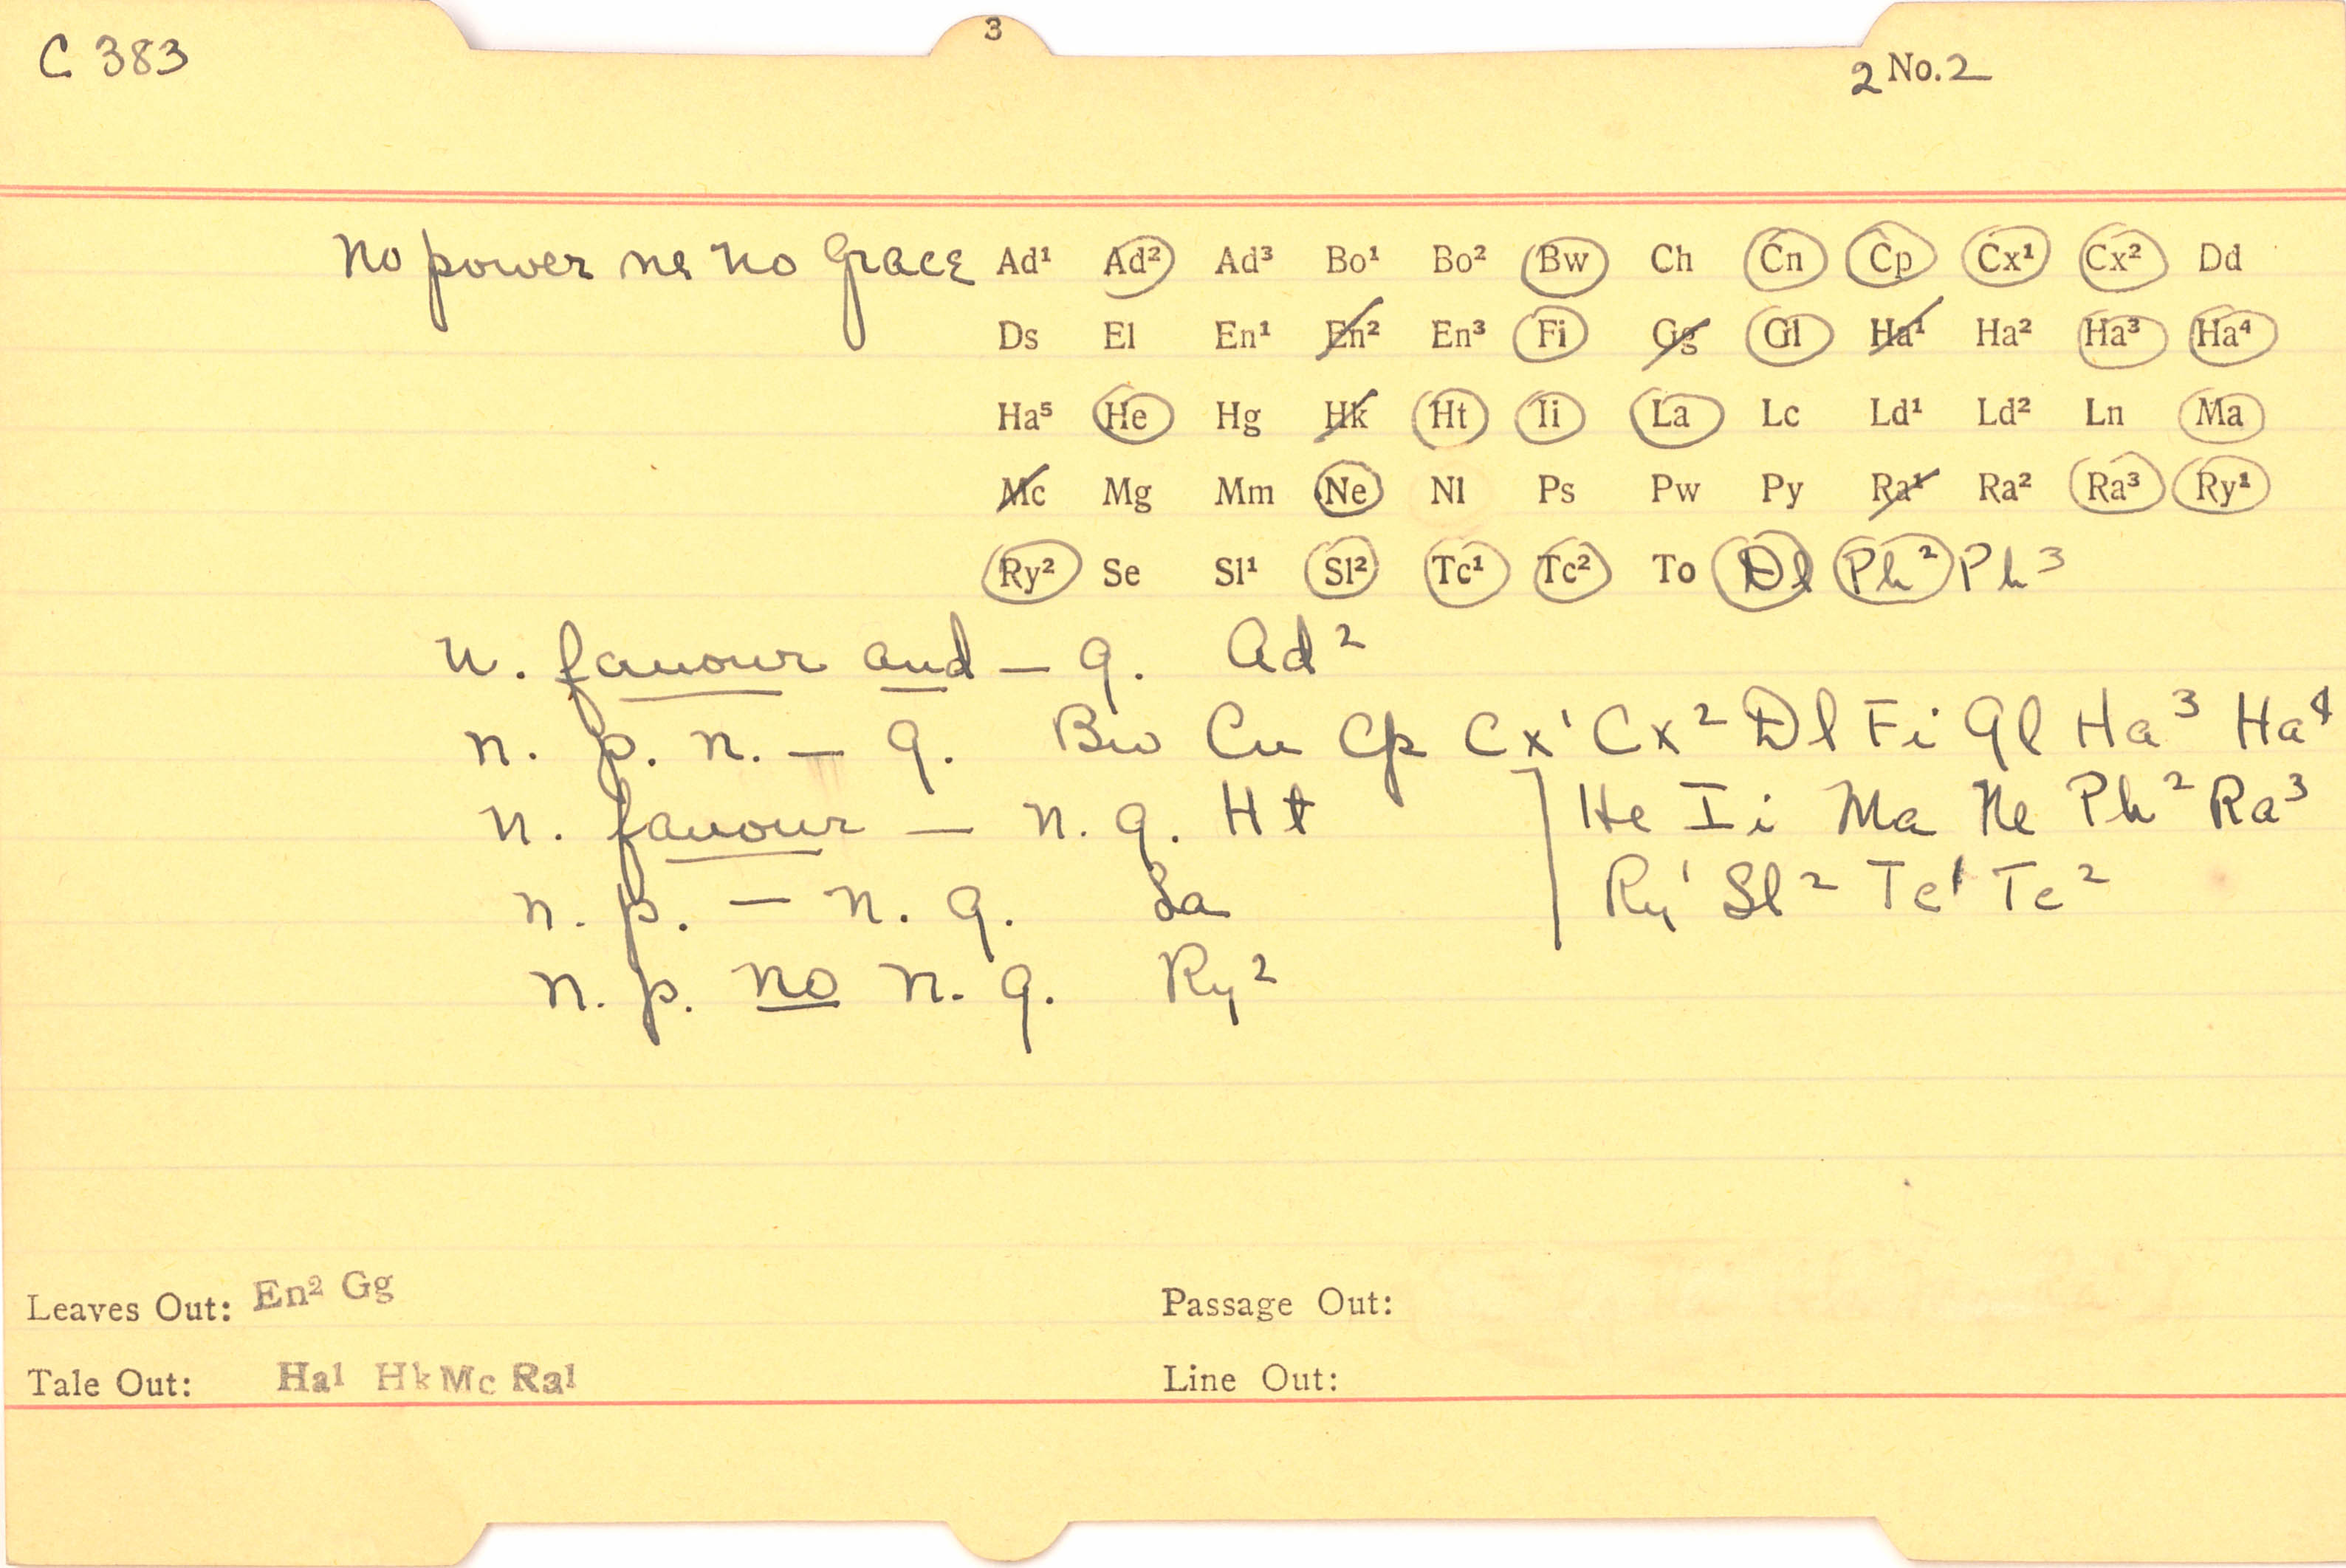 3
C 383
2 No. 2
No power ne no grace Ad¹ Ad² Ad³ Bo¹ Bo² Bw Ch Cn Cp Cx¹ Cx² Dd
Ds El En¹ En² En³ Fi Gg Gl Ha¹ Ha² Ha³ Ha⁴
Ha⁵ He Hg Hk Ht Ii La Lc Ld¹ Ld² Ln Ma
Mc Mg Mm Ne Nl Ps Pw Py Ra¹ Ra² Ra³ Ry¹
Ry² Se Sl¹ Sl² Tc¹ Tc² To Dl Ph² Ph³
n. favour and – g. Ad²
n. p. n. – g. Bw Cn Cp Cx¹ Cx² Dl Fi Gl Ha³ Ha⁴
n. favour – n. g. Ht ] He Ii Ma Ne Ph² Ra³
n. p. – n. g. La Ry¹ Sl² Tc¹ Tc²
n. p. no n. g. Ry²
Leaves Out: En² Gg Passage Out:
Tale Out: Ha¹ Hk Mc Ra¹ Line Out: